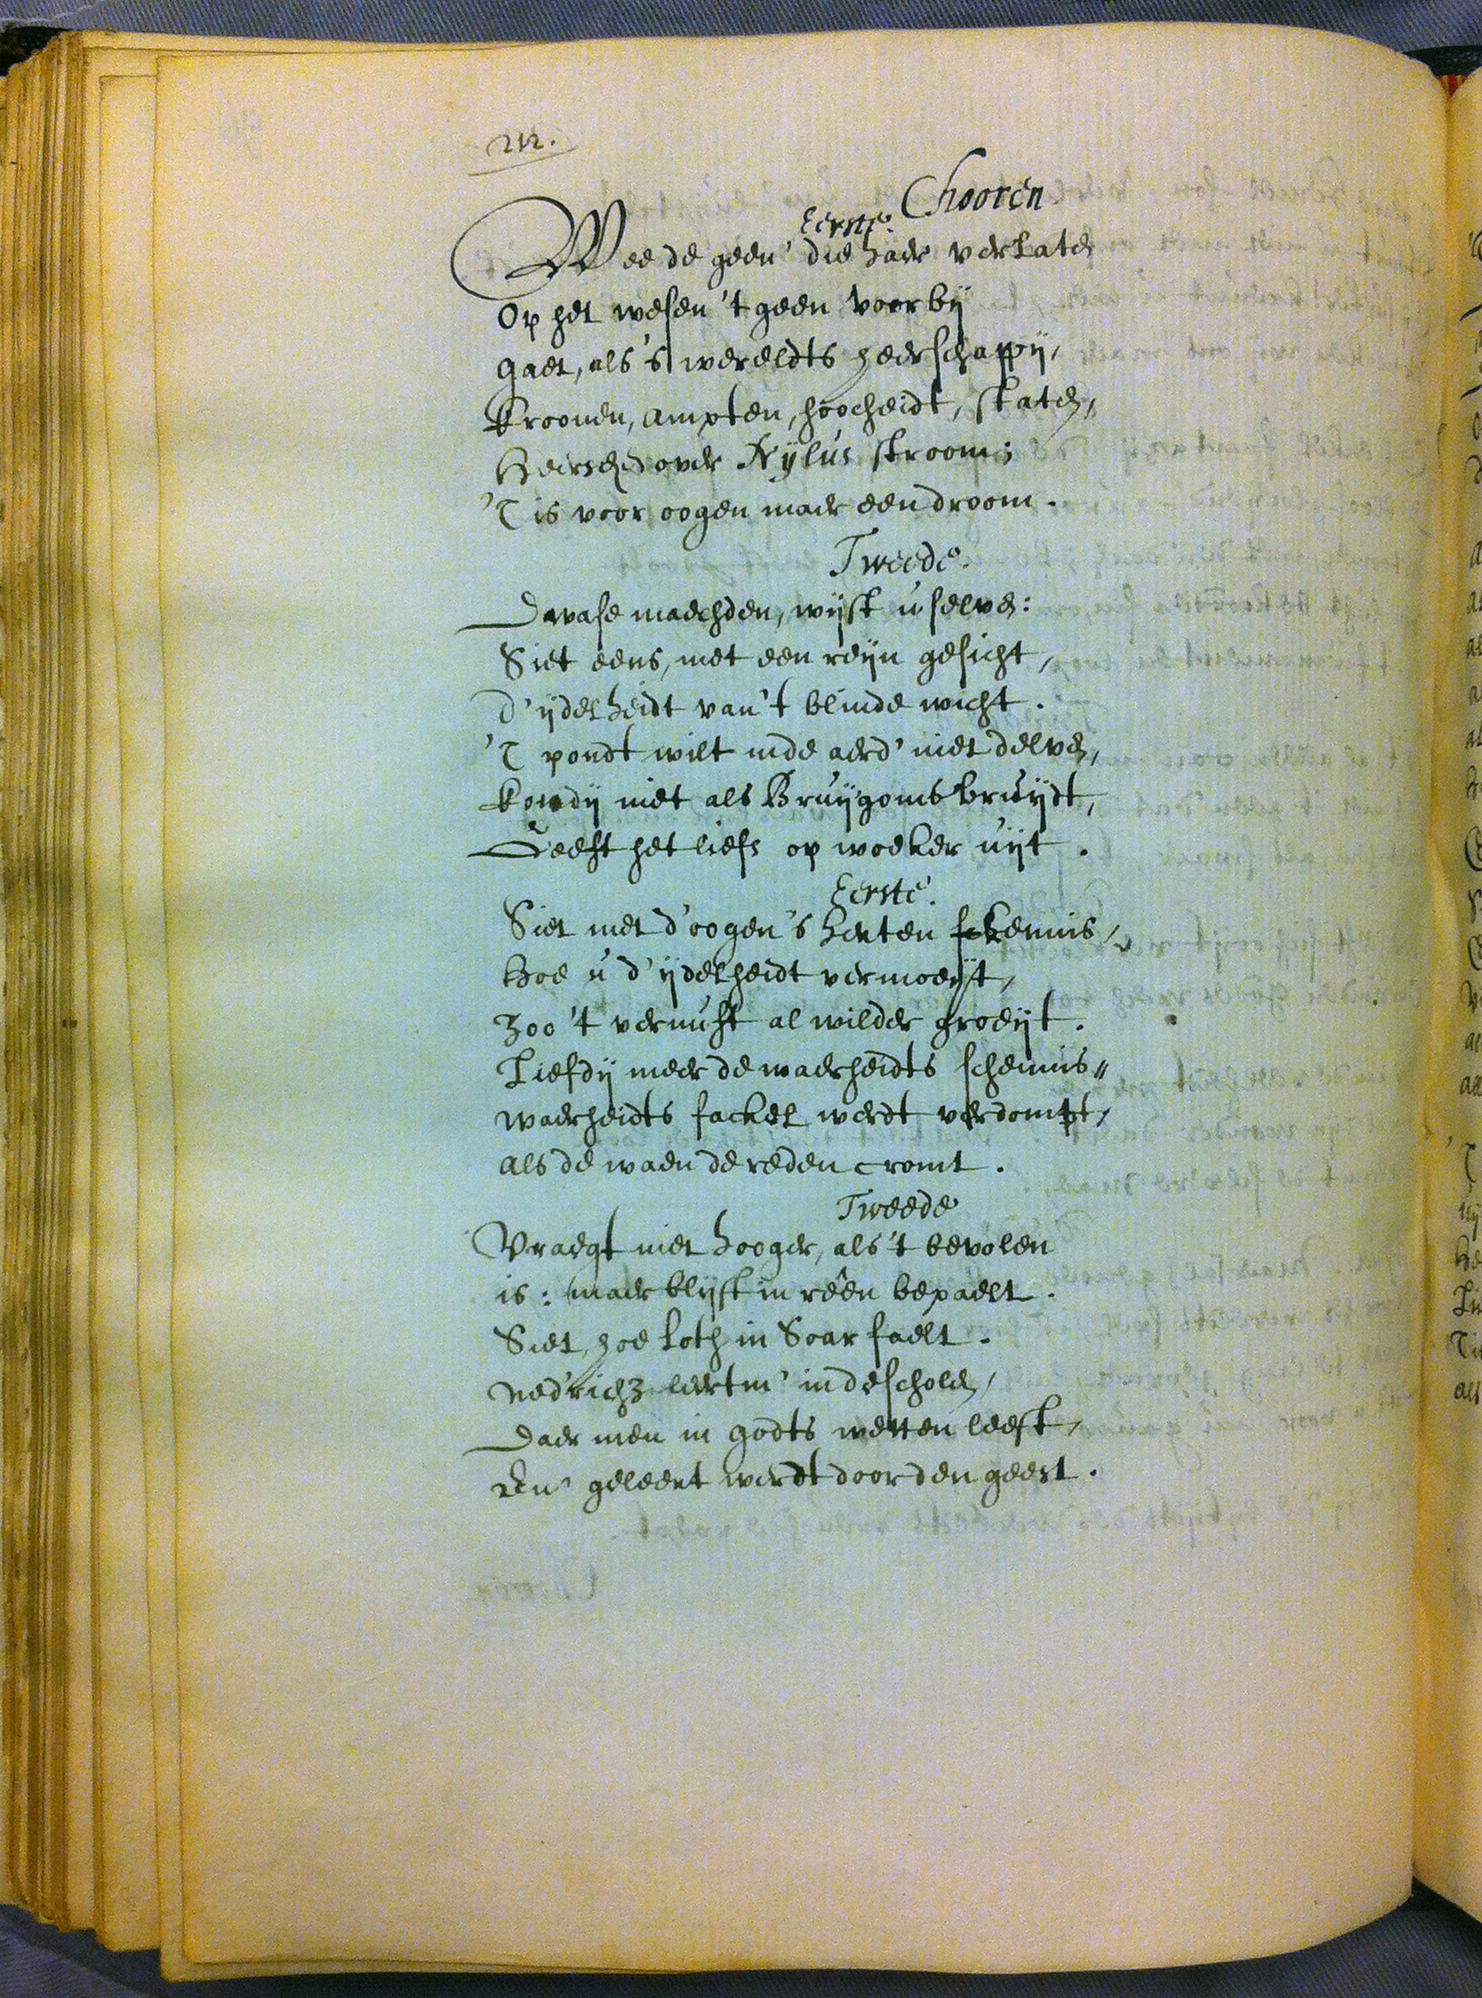 212.
Chooren
Eerste.
Wee de geen' die haer verlaten
Op het wesen 't geen voorbij
gaet, als 's werelds heerschappij,
Kroonen, ampten, hoocheidt, staten,
Heerschen over Nylus stroom;
'T is voor oogen maer een droom.
Tweede.
Dwase maechden, wijst u selven:
Siet eens, met een reijn gesicht,
d'ijdelheidt van 't blinde wicht.
'T pondt wilt inde aerd' niet delven,
Kendij niet als Bruijgoms bruijdt,
Geeft het liefs op woeker uijt.
Eerste.
Siet met d'oogen 's herten kennis,
Hoe u d'ijdelheidt vermoeijt,
Zoo 't vernuft al wilder groeijt.
Liefdij meer de waerheidts schennis,,
waerheidts fackel werdt verdompt,
als de waen de reden cromt.
Tweede
Vraegt niet hooger, als 't bevolen
is: maer blijft in reên bepaelt.
Siet, hoe Loth in Soar faelt.
Ned'richz leert m' in de scholen,
Daer men in godts wetten leest,
En' geleert werdt door den geest.